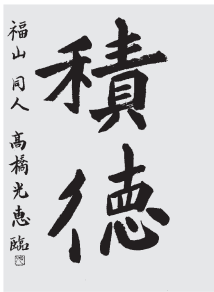 積徳
福山 同人 髙橋光恵臨